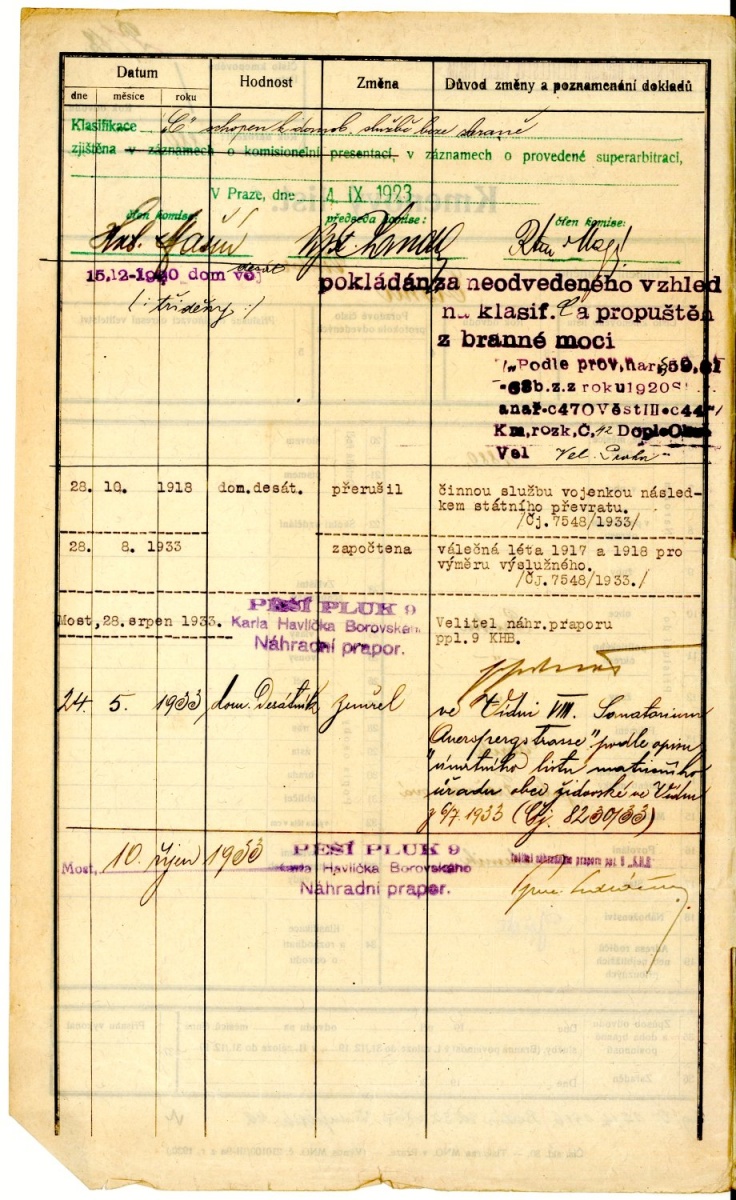 Datum
Hodnost
Změna
Důvod změny a poznamenání dokladů
dne měsíce roku
Klasifikace "C" schopen k domob. službě beze zbraně
zjištěna v záznamech o komisionelní presentaci, v záznamech o provedené superarbitraci,
V Praze, dne 4. IX 1923
člen komise: předseda komise: člen komise:
15.12-1920 dom voj
desát
(: tříděný :)
pokládán za neodvedeného vzhled
na klasif. C a propuštěn
z branné moci
Podle prov, nař,
68b.z.z roku1920
a nař•c470 Věst III•c44
Km, rozk, Č, 42
Vel Vel. Praha"
28. 10. 1918 dom.desát. přerušil činnou službu vojenkou násled-
kem státního převratu.
/Čj. 7548/1933/
28. 8. 1933 započtena válečná léta 1917 a 1918 pro
výměru výslužného.
/ČJ. 7548/1933./
PĚŠÍ PLUK 9
Most, 28. srpen 1933. Karla Havlíčka Borovského
Náhradní prapor.
Velitel náhr.praporu
ppl.9 KHB.
24. 5. 1933 dom. Desátník zemřel ve Vídni VIII. Sanatorium
Auerspergstrasse" podle opisu
"úmrtního listu matričního
úřadu obce židovské ve Vídni
z 6/7. 1933 (Čj. 8230/33)
PĚŠÍ PLUK 9
Most, 10. říjen 1933 Karla Havlíčka Borovského
Náhradní prapor.
Velitel náhradního praporu ppl. 9 „K.H.B."